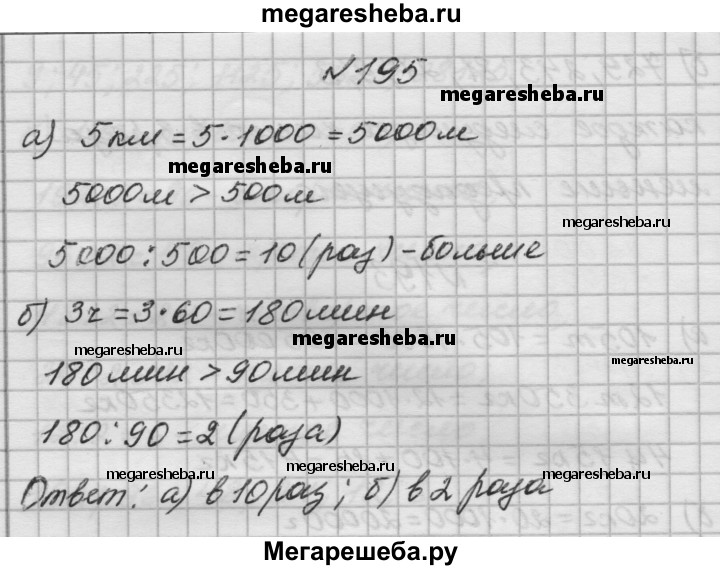 megaresheba.ru
№195
megaresheba.ru
а) 5км = 5·1000 = 5000м
megaresheba.ru
5000м > 500м
megaresheba.ru
5000 : 500 = 10 (раз) – больше
б) 3ч = 3·60 = 180мин
megaresheba.ru
megaresheba.ru
megaresheba.ru
180мин > 90мин
180 : 90 = 2 (раза)
megaresheba.ru
megaresheba.ru
megaresheba.ru
Ответ: а) в 10 раз; б) в 2 раза
Мегарешеба.ру